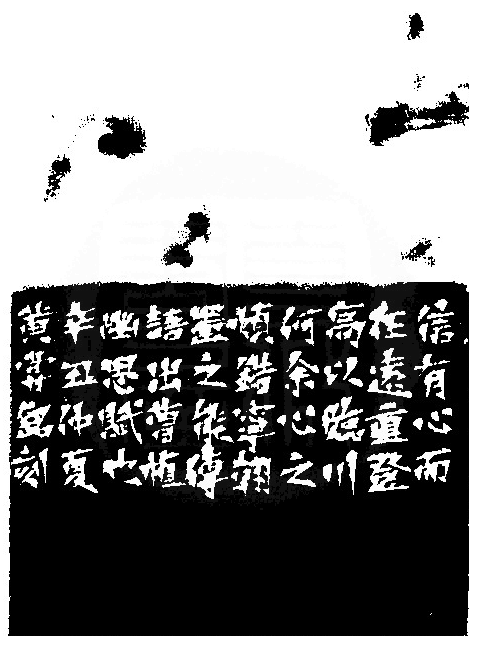 信有心而
在遠重登
高以臨川
何余心之
煩錯寧翰
墨之能傳
語出曹植
幽思賦也
辛丑仲夏
黃刻